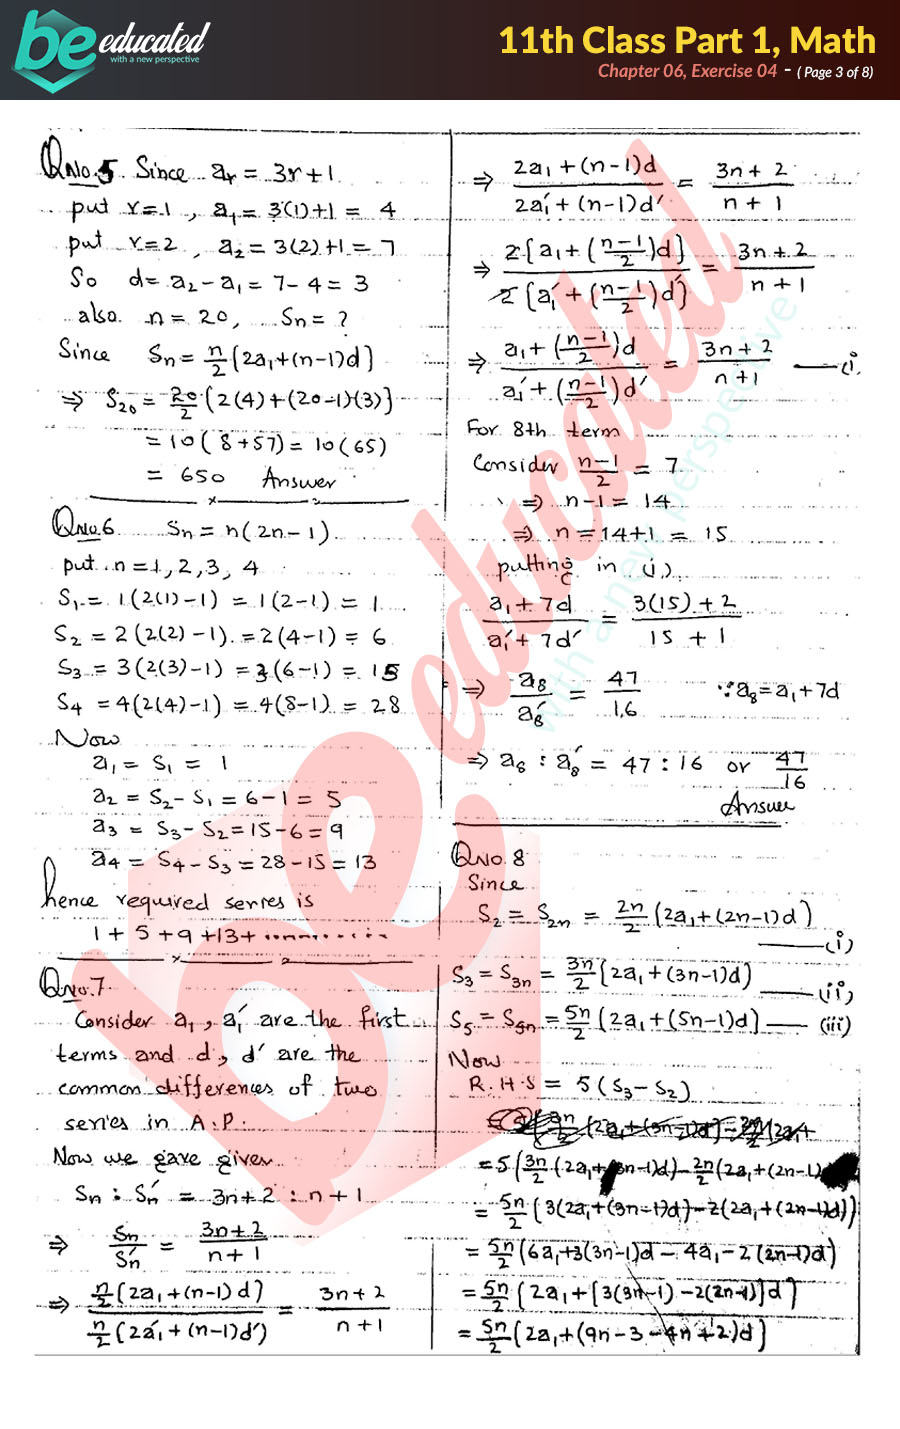 be educated
with a new perspective
11th Class Part 1, Math
Chapter 06, Exercise 04 - ( Page 3 of 8)
QNo.5 Since ar = 3r+1
put r=1, a1 = 3(1)+1 = 4
put r=2, a2 = 3(2)+1 = 7
So d = a2-a1 = 7-4 = 3
also n = 20, Sn = ?
Since Sn = n/2 (2a1+(n-1)d]
⇒ S20 = 20/2 (2(4)+(20-1)(3)]
= 10(8+57) = 10(65)
= 650 Answer
QNo.6 Sn = n(2n-1)
put n = 1, 2, 3, 4
S1 = 1(2(1)-1) = 1(2-1) = 1
S2 = 2(2(2)-1) = 2(4-1) = 6
S3 = 3(2(3)-1) = 3(6-1) = 15
S4 = 4(2(4)-1) = 4(8-1) = 28
Now
a1 = S1 = 1
a2 = S2-S1 = 6-1 = 5
a3 = S3-S2 = 15-6 = 9
a4 = S4-S3 = 28-15 = 13
hence required series is
1+5+9+13+...........
QNo.7
Consider a1, a1′ are the first
terms and d, d′ are the
common differences of two
series in A.P.
Now we gave given
Sn : Sn′ = 3n+2 : n+1
⇒ Sn/Sn′ = 3n+2/n+1
⇒ n/2 (2a1+(n-1)d) / n/2 (2a1′+(n-1)d′) = 3n+2/n+1
⇒ 2a1+(n-1)d / 2a1′+(n-1)d′ = 3n+2/n+1
⇒ 2[a1+(n-1/2)d] / 2[a1′+(n-1/2)d′] = 3n+2/n+1
⇒ a1+(n-1/2)d / a1′+(n-1/2)d′ = 3n+2/n+1 —(i)
For 8th term
Consider n-1/2 = 7
⇒ n-1 = 14
⇒ n = 14+1 = 15
putting in (i)
a1+7d / a1′+7d′ = 3(15)+2 / 15+1
⇒ a8/a8′ = 47/16 ∵ a8 = a1+7d
⇒ a8 : a8′ = 47 : 16 or 47/16
Answer
QNo.8
Since
S2 = S2n = 2n/2 (2a1+(2n-1)d)
—(i)
S3 = S3n = 3n/2 [2a1+(3n-1)d] —(ii)
S5 = S5n = 5n/2 [2a1+(5n-1)d] —(iii)
Now
R.H.S = 5(S3-S2)
= 5(3n/2 (2a1+(3n-1)d)-2n/2(2a1+(2n-1)
= 5n/2 (3(2a1+(3n-1)d)-2(2a1+(2n-1)d))
= 5n/2 (6a1+3(3n-1)d-4a1-2(2n-1)d)
= 5n/2 [2a1+[3(3n-1)-2(2n-1)]d]
= 5n/2 [2a1+(9n-3-4n+2)d]
be educated
with a new perspective